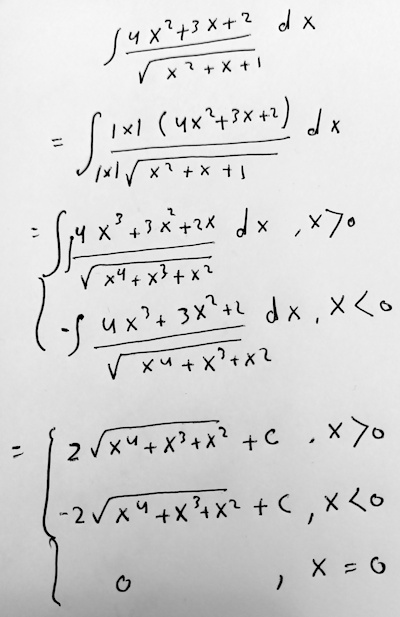 ∫ (4x²+3x+2)/√(x²+x+1) dx
= ∫ |x| (4x²+3x+2)/(|x|√(x²+x+1)) dx
= { ∫ (4x³+3x²+2x)/√(x⁴+x³+x²) dx , x>0
-∫ (4x³+3x²+2)/√(x⁴+x³+x²) dx , x<0
= { 2√(x⁴+x³+x²) + C , x>0
-2√(x⁴+x³+x²) + C , x<0
0 , x = 0